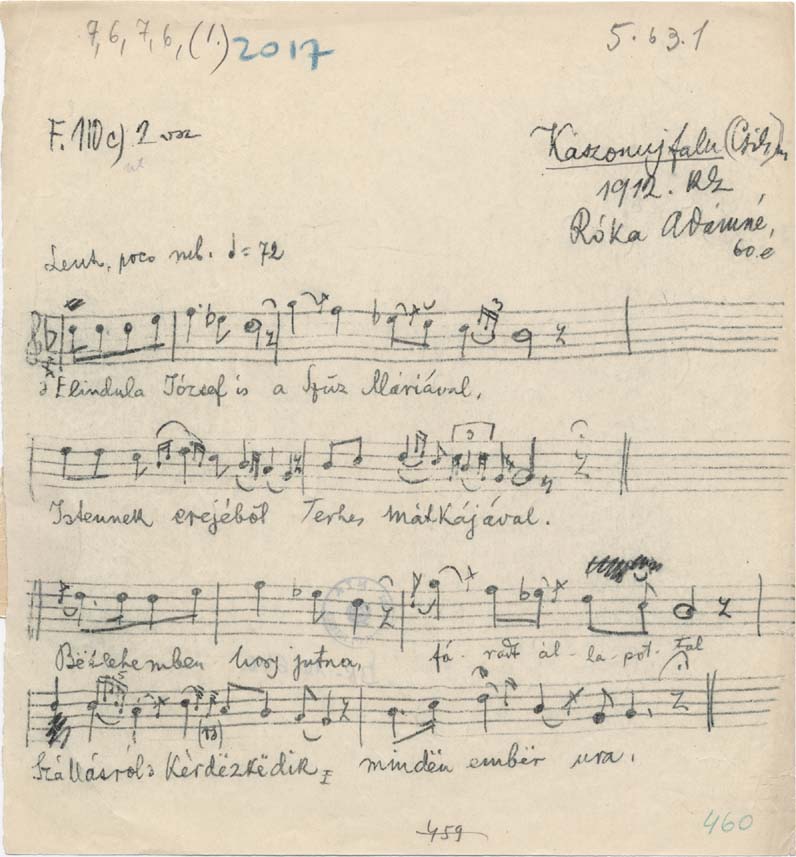 7, 6, 7, 6, (1.) 2017
5. b3. 1
F. 110 c)
Kászonujfalu (Csík)
1912.
Róka Ádámné,
60.é
Lent, poco rub. = 72
Elindula József is a Szűz Máriával,
Istennek erejéből Terhes mátkájával.
Bëtlehemben hogy jutna, fá - radt ál - la - pot - tal
Szállásról Kérdëzkëdik, mindën embër ura.
459
460